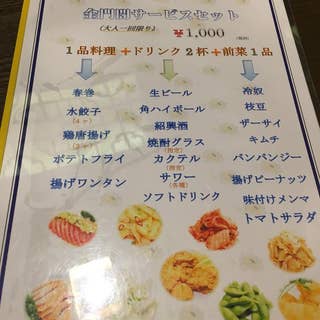 金門閣サービスセット
(大人一回限り) ¥1,000 (税別)
1品料理+ドリンク2杯+前菜1品
春巻
水餃子
(4ヶ)
鶏唐揚げ
ポテトフライ
揚げワンタン
生ビール
角ハイボール
紹興酒
焼酎グラス
(指定)
カクテル
(指定)
サワー
(各種)
ソフトドリンク
冷奴
枝豆
ザーサイ
キムチ
バンバンジー
揚げピーナッツ
味付けメンマ
トマトサラダ